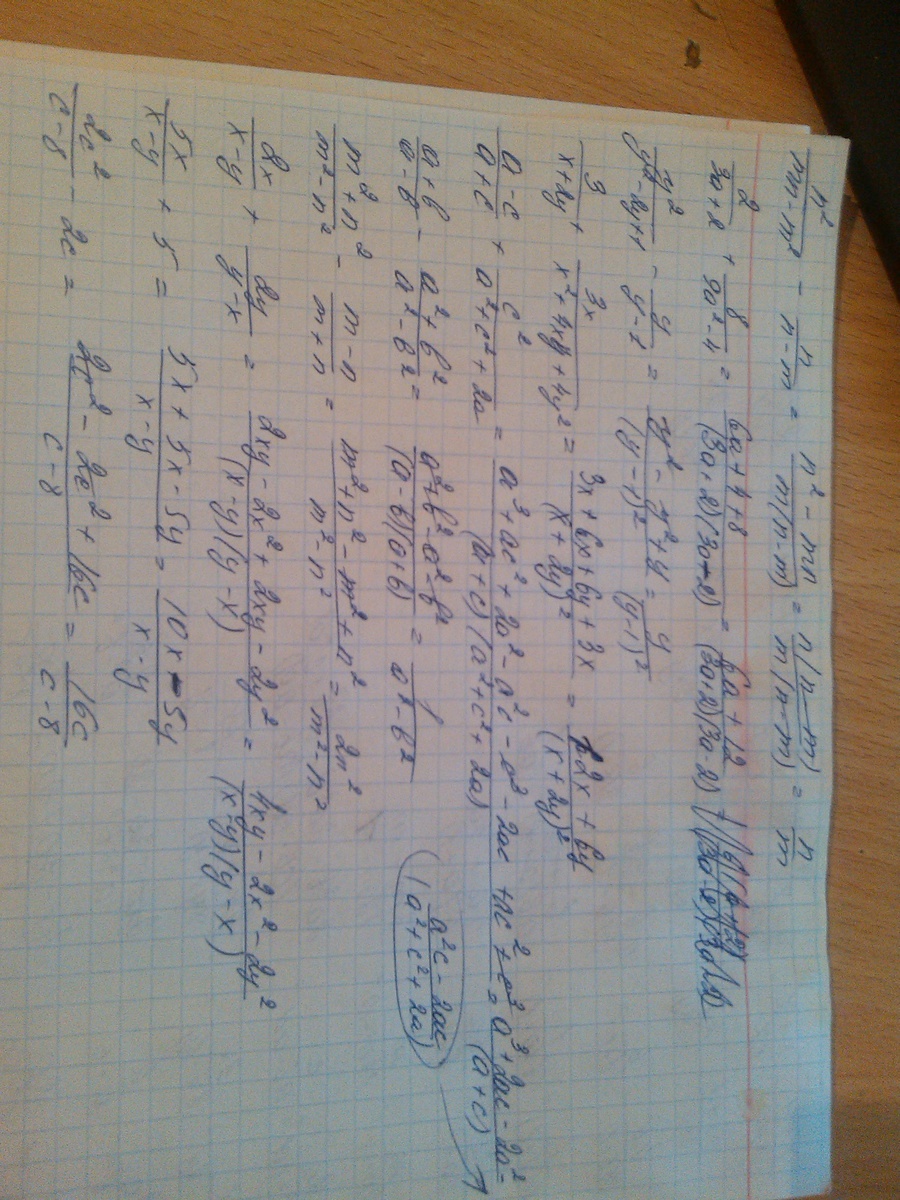 n²/(mn-m²) - n/(n-m) = (n²-mn)/(m(n-m)) = n(n-m)/(m(n-m)) = n/m
2/(3a+2) + 8/(9a²-4) = (6a+4+8)/((3a+2)(3a-2)) = (6a+12)/((3a+2)(3a-2))
y²/(y²-2y+1) - y/(y-1) = (y²-y²+y)/(y-1)² = y/(y-1)²
3/(x+2y) + 3x/(x²+4xy+4y²) = (3x+6x+6y+3x)/(x+2y)² = (12x+6y)/(x+2y)²
(a-c)/(a+c) + c²/(a²+c²+2a) = (a³+ac²+2a²-a²c-c³-2ac+ac²+c³)/((a+c)(a²+c²+2a)) = (a³+2ac²-2a²=)/(a+c)
(a+b)/(a-b) - (a²+b²)/(a²-b²) = (a²+b²-a²-b²)/((a-b)(a+b)) = /(a²-b²)
(a²c-2ac)/(a²+c²+2a)
(m²+n²)/(m²-n²) - (m-n)/(m+n) = (m²+n²-m²+n²)/(m²-n²) = 2n²/(m²-n²)
2x/(x-y) + 2y/(y-x) = (2xy-2x²+2xy-2y²)/((x-y)(y-x)) = (4xy-2x²-2y²)/((x-y)(y-x))
5x/(x-y) + 5 = (5x+5x-5y)/(x-y) = (10x-5y)/(x-y)
2c²/(c-8) - 2c = (2c²-2c²+16c)/(c-8) = 16c/(c-8)